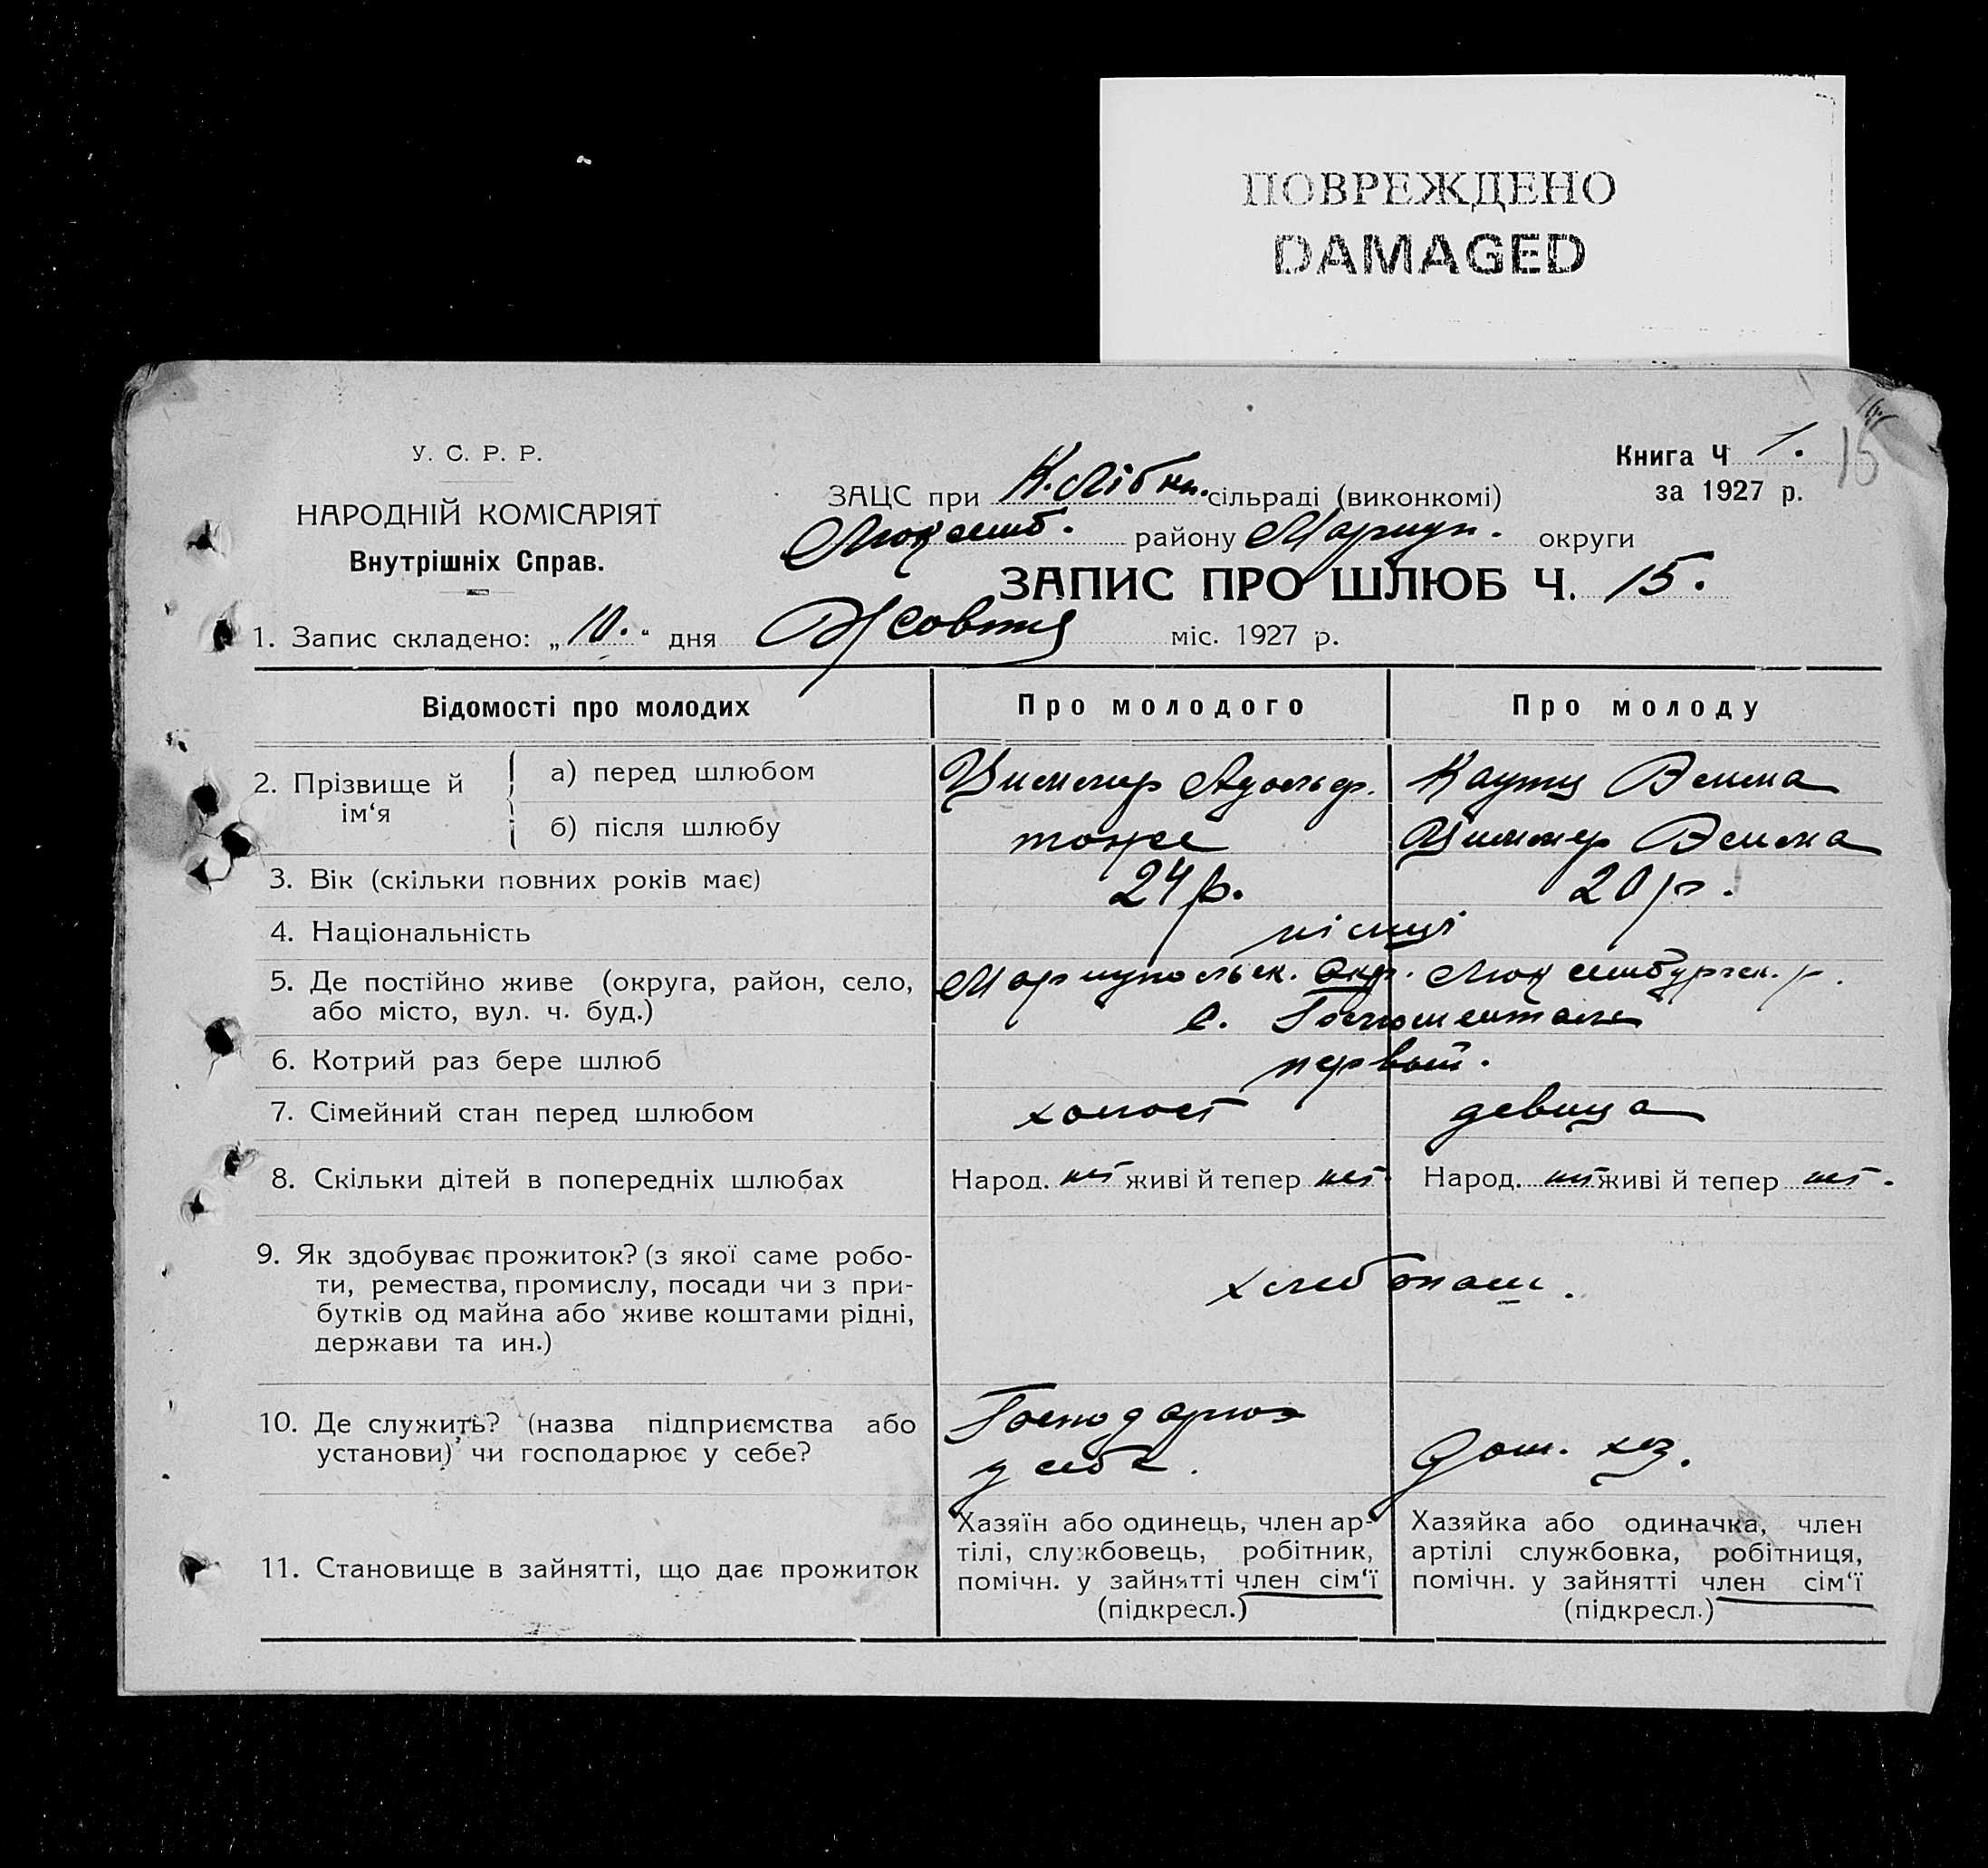 ПОВРЕЖДЕНО
DAMAGED
У. С. Р. Р.
НАРОДНІЙ КОМІСАРІЯТ
Внутрішніх Справ.
Книга Ч 1.
за 1927 р.
15
ЗАЦС при К. Лібкн. сільраді (виконкомі)
Люксемб. району Маріуп. округи
ЗАПИС ПРО ШЛЮБ Ч. 15.
1. Запис складено: „10." дня Жовтня міс. 1927 р.
Відомості про молодих Про молодого Про молоду
2. Прізвище й ім'я
а) перед шлюбом Циммер Адольф. Каутц Эмма
б) після шлюбу тоже Циммер Эмма
3. Вік (скільки повних років має) 24 р. 20 р.
4. Національність німці
5. Де постійно живе (округа, район, село, або місто, вул. ч. буд.)
Мариупольск. Окр. Люксембургск. р.
с.
6. Котрий раз бере шлюб первый.
7. Сімейний стан перед шлюбом холост девица
8. Скільки дітей в попередніх шлюбах Народ. нет живі й тепер нет. Народ. нет живі й тепер нет.
9. Як здобуває прожиток? (з якої саме робо-
ти, ремества, промислу, посади чи з при-
бутків од майна або живе коштами рідні,
держави та ин.)
хлебопаш.
10. Де служить? (назва підприємства або
установи) чи господарює у себе?
Господарює
у себе.
Дом. хоз.
11. Становище в зайнятті, що дає прожиток
Хазяїн або одинець, член ар-
тілі, службовець, робітник,
помічн. у зайнятті член сім'ї
(підкресл.)
Хазяйка або одиначка, член
артілі службовка, робітниця,
помічн. у зайнятті член сім'ї
(підкресл.)